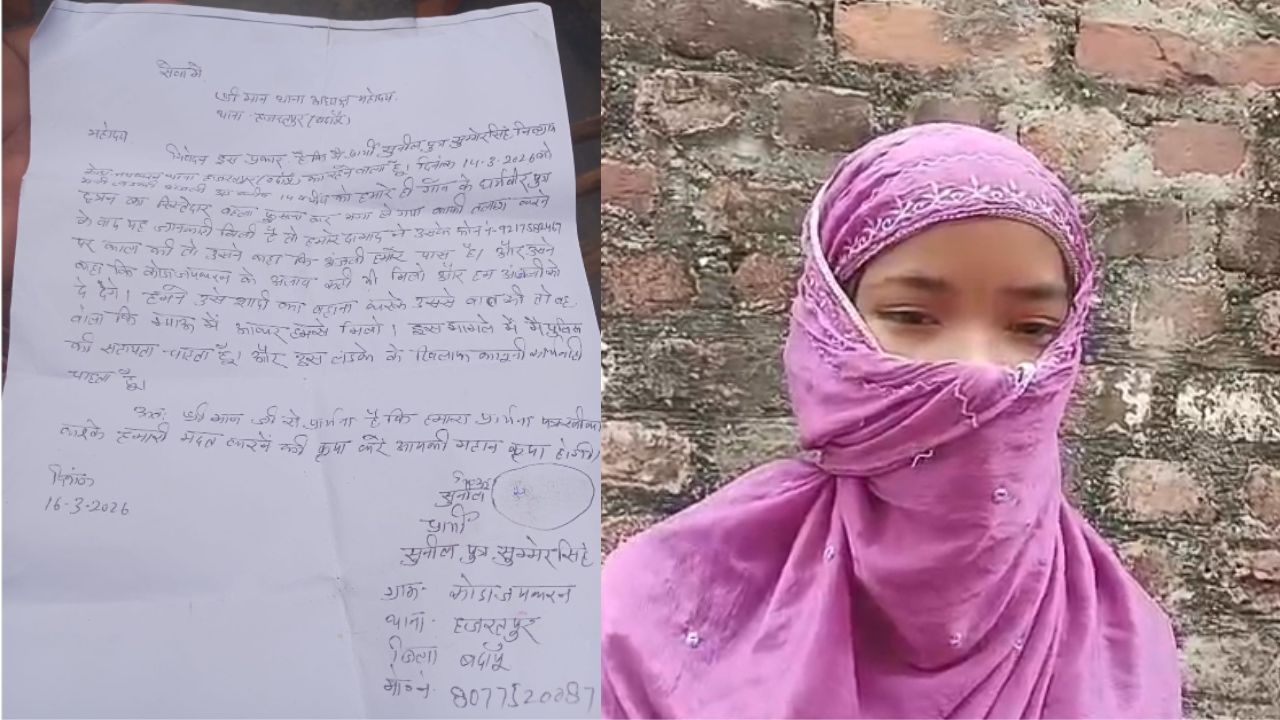 सेवा में
श्री मान थाना अध्यक्ष महोदय
थाना - हजरतपुर (बदायूँ)
महोदय
निवेदन इस प्रकार है कि मैं प्रार्थी सुनील पुत्र सुम्मेर सिंह निवासी
थाना हजरतपुर (बदायूँ) का रहने वाला हूँ। दिनांक 14-3-2026 को
14 वर्षीय को हमारे ही गांव के धर्मवीर पुत्र
का रिस्तेदार बहला फुसला कर भगा ले गया काफी तलाश करने
के बाद यह जानकारी मिली है तो हमारे दामाद ने उसके फोन
पर काल की तो उसने कहा कि अंजली हमारे पास है। और उसने
कहा कि कोडा जयकरन के अलावा कही भी मिलो और हम अंजली को
दे देंगे। हमने उसे शादी का बहाना करके उससे बात की तो वह
बोला कि में आकर हमसे मिलो। इस मामले में मैं पुलिस
की सहायता चाहता हूँ। और इस लडके के खिलाफ कानूनी कार्यवाही
चाहता हूँ।
अतः श्री मान जी से प्रार्थना है कि हमारा प्रार्थना पत्र
करके हमारी मदद करने की कृपा करें आपकी महान कृपा होगी।
दिनांक
16-3-2026
सुनील
प्रार्थी
सुनील पुत्र सुम्मेर सिंह
ग्राम - कोडा जयकरन
थाना - हजरतपुर
जिला बदायूँ
मो० नं० 8077520087